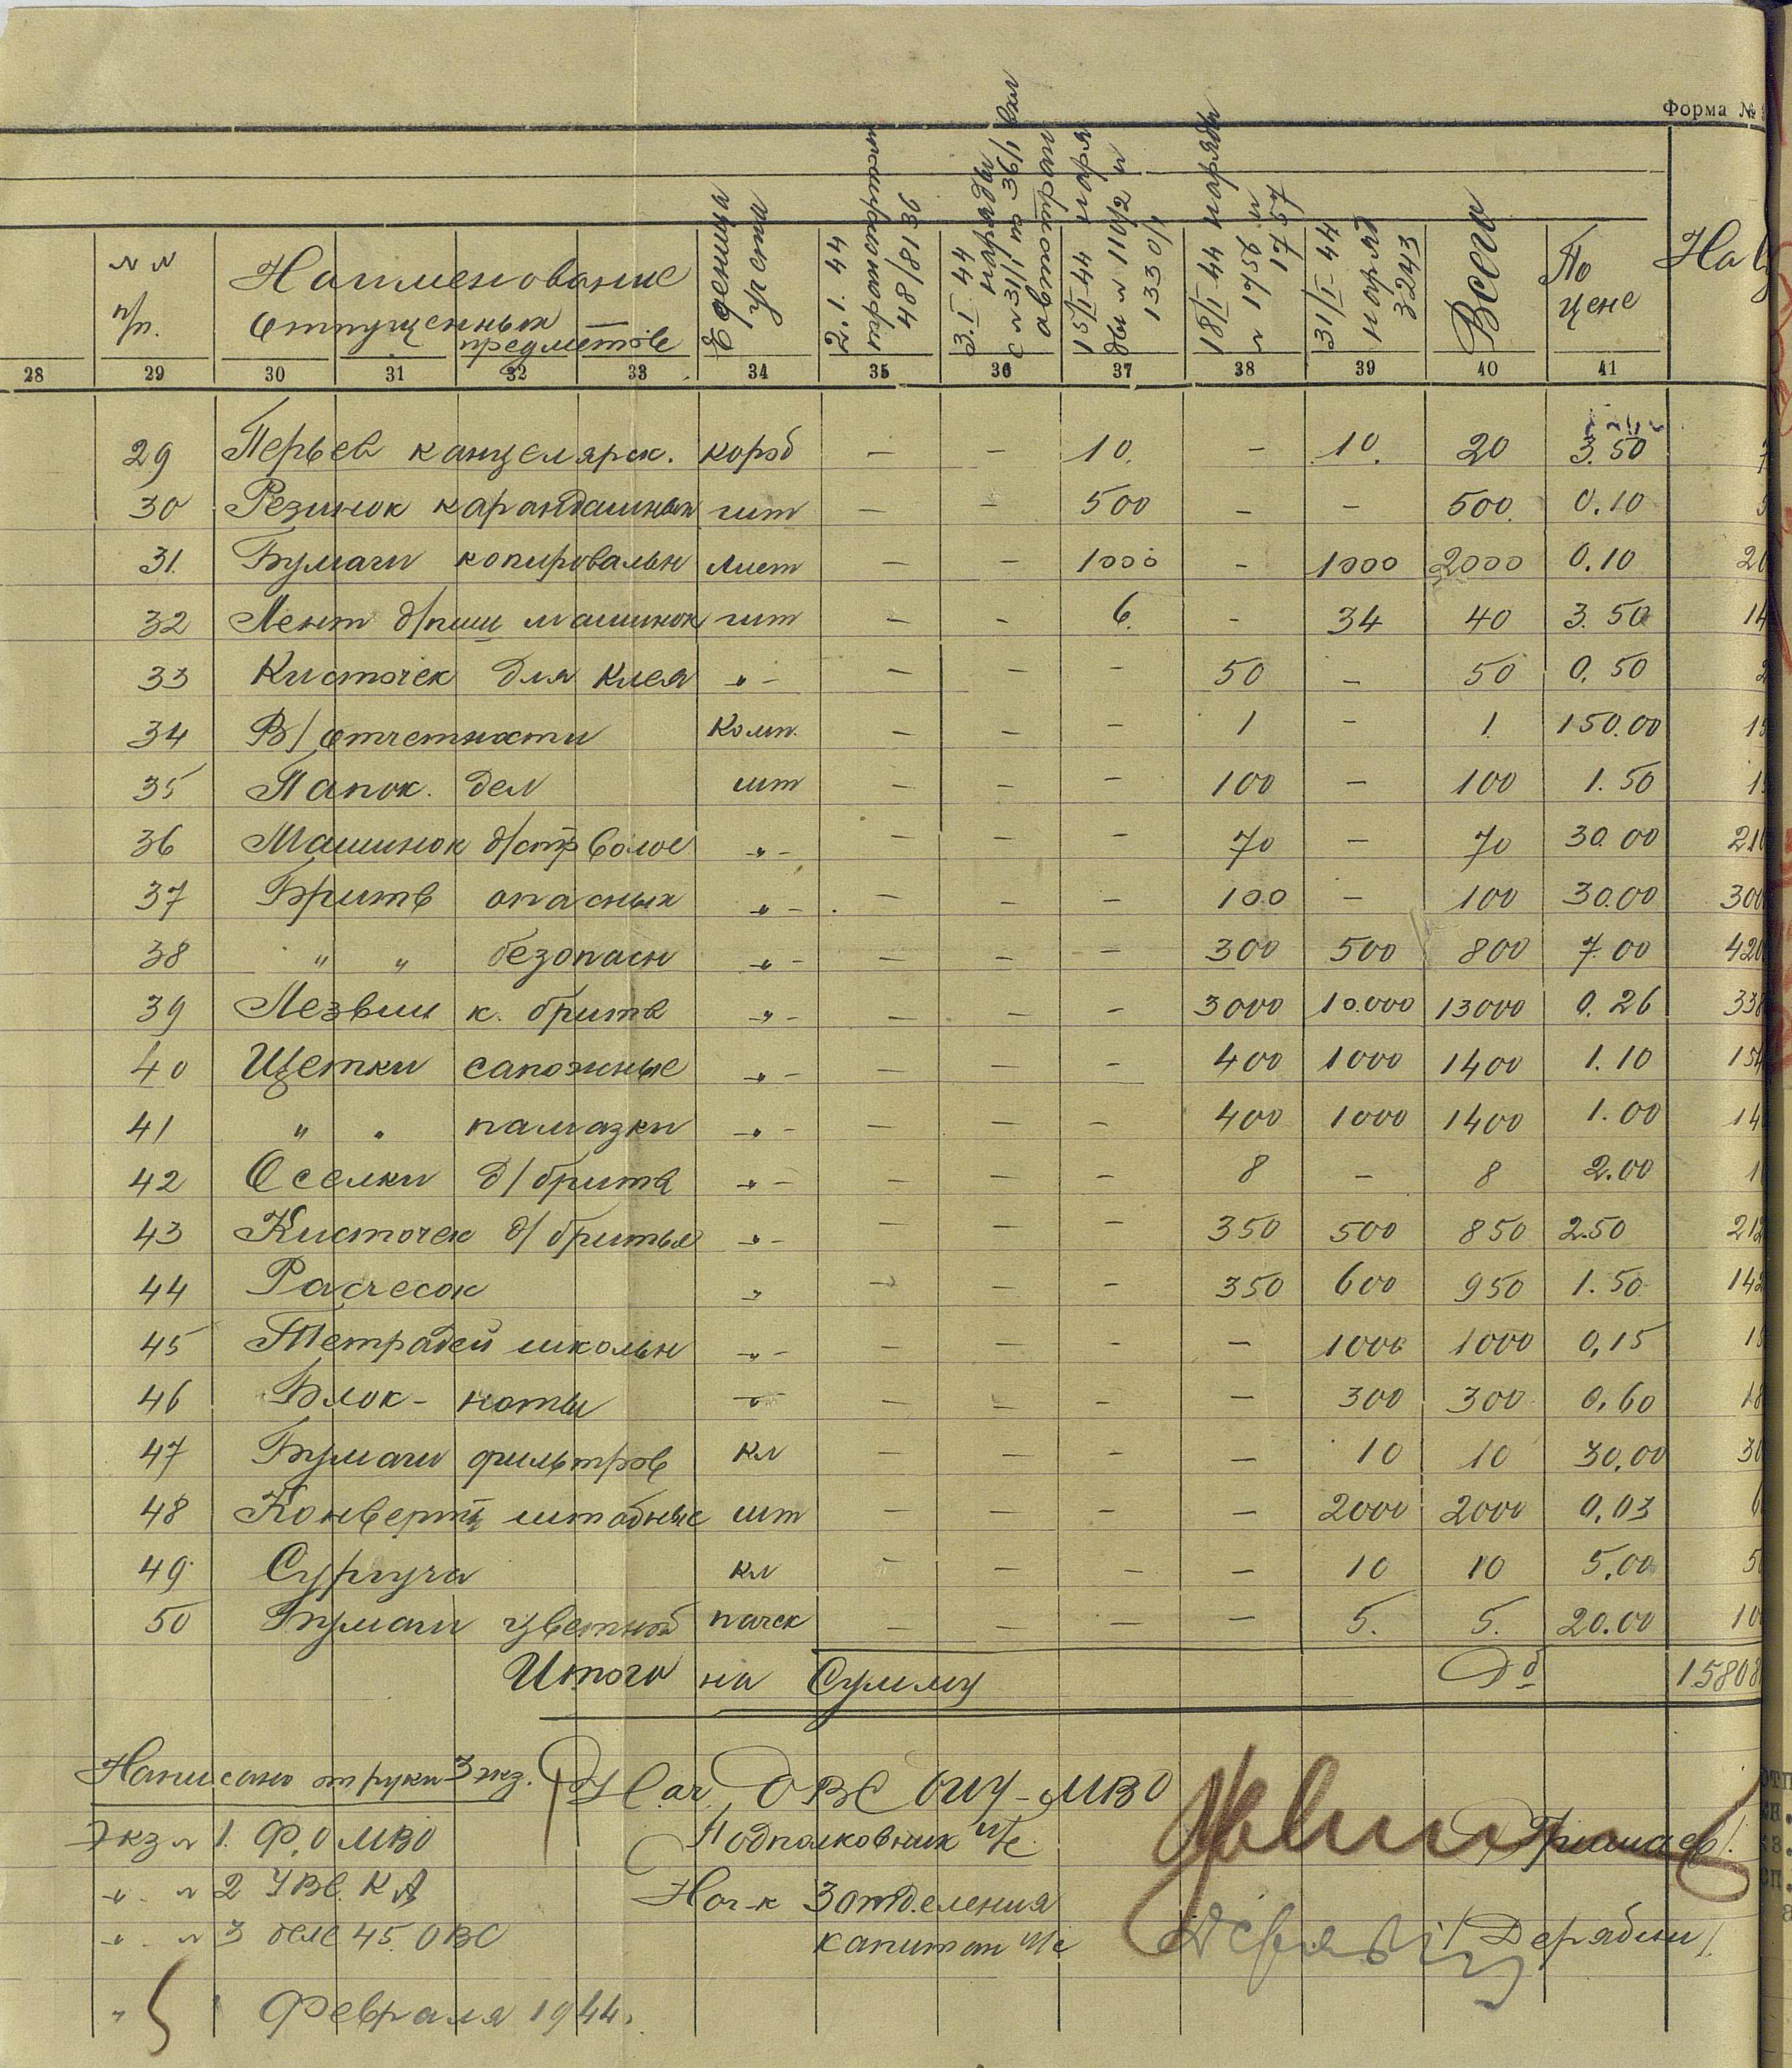 Форма №
№ № п/п.
Наименование отпущенных предметов
Единица учета
2.1.44 48/8136
3.I.44 наряды с № 31/1 по 36/1 вкл
15/I-44 наряды № 110/2 и 1330/1
18/I-44 наряды № 1756 и 1757
31/I-44 наряд 3243
Всего
По цене
На
28 29 30 31 32 33 34 35 36 37 38 39 40 41
29 Перьев канцелярск. короб — — 10. — 10. 20 3.50
30 Резинок карандашных шт — — 500 — — 500 0.10
31. Бумаги копировальн лист — — 1000 — 1000 2000 0.10 20
32 Лент д/пиш машинок шт — — 6. — 34 40 3.50 14
33 Кисточек для клея -"- — — — 50 — 50 0.50 2
34 В/отчетности Комп. — — — 1 — 1 150.00 15
35 Папок. дел шт — — — 100 — 100 1.50 15
36 Машинок д/стр волос -"- — — — 70 — 70 30.00 210
37 Бритв опасных -"- — — — 100 — 100 30.00 300
38 " " безопасн -"- — — — 300 500 800 7.00 420
39 Лезвии к. бритв -"- — — — 3000 10.000 13000 0.26 338
40 Щетки сапожные -"- — — — 400 1000 1400 1.10 154
41 " " памазки -"- — — — 400 1000 1400 1.00 14
42 Оселки д/бритв -"- — — — 8 — 8 2.00 1
43 Кисточек д/бритья -"- — — — 350 500 850 2.50 212
44 Расчесок " — — — 350 600 950 1.50 142
45 Тетрадей школьн -"- — — — — 1000 1000 0,15 15
46 Блок-ноты -"- — — — — 300 300 0,60 18
47 Бумаги фильтров кл — — — — 10 10 30,00 30
48 Конверты штабные шт — — — — 2000 2000 0,03 6
49 Сургуча кл — — — — 10 10 5,00 5
50 Бумаги цветной пачек — — — — 5. 5. 20.00 10
Итого на Сумму 15808
Написано от руки 3 экз.
Нач. ОВС ОИУ-МВО
Экз № 1. Ф.О МВО
Подполковник и/с Гришаев/.
-"- № 2 УВС. КА
Нач-к 3 отделения
-"- № 3 дело 45. ОВС
капитан и/с /Дерябин/.
" Февраля 1944.